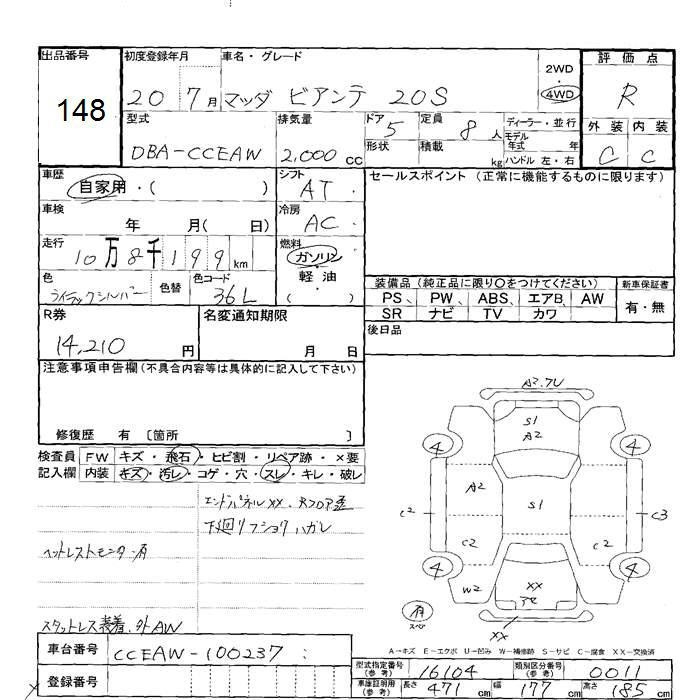 出品番号 初度登録年月 車名・グレード 2WD・4WD 評価点
148 20 7月 マツダ ビアンテ 20S R
型式 排気量 ドア 5 定員 8人 ディーラー・並行 外装 内装
DBA-CCEAW 2,000cc 形状 積載 kg モデル年式 年 ハンドル 左・右 C C
車歴 自家用・( ) シフト AT セールスポイント (正常に機能するものに限ります)
車検 年 月( 日) 冷房 AC
走行 10万8千199km 燃料 ガソリン・軽油 ( )
色 色替 色コード 36L
装備品(純正品に限り○をつけてください) 新車保証書
PS、PW、ABS、エアB、AW 有・無
SR ナビ TV カワ
R券 14,210円 名変通知期限 月 日 後日品
注意事項申告欄(不具合内容等は具体的に記入して下さい)
修復歴 有 [箇所 ]
検査員記入欄 FW キズ・飛石・ヒビ割・リペア跡・×要
内装 キズ・汚レ・コゲ・穴・スレ・キレ・破レ
エンドパネルXX、
下廻リフショクハガレ
ヘットレストモニター有
スタットレス装着、外AW
A2.7U
S1
A2
4 4
A2
S1
C2 C3
C2 C2
4 4
W2 XX
有
スペア
XX
A→キズ E→エクボ U→凹み W→補修跡 S→サビ C→腐食 XX→交換済
車台番号 CCEAW-100237
型式指定番号(参考) 16104 類別区分番号(参考) 0011
登録番号
車庫証明用(参考) 長さ 471cm 幅 177cm 高さ 185cm